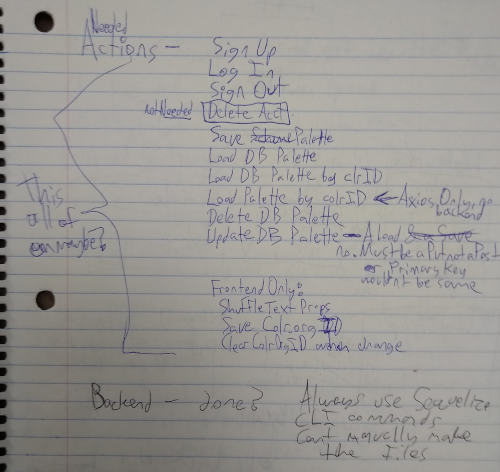 Needed
Actions –
Sign Up
Log In
Sign Out
not Needed Delete Acct
Save Palette
Load DB Palette
Load DB Palette by clrID
Load Palette by colrID ← Axios Only, no backend
Delete DB Palette
Update DB Palette – A load & Save
no. Must be a Put not a Post
or Primary Key
wouldn't be same
This
all of
or maybe?
Frontend Only:
Shuffle Text Props
Save Colr.org ID
Clear ColrOrgID when change
Backend – done?
Always use Sequelize
CLI commands
Can't manually make
the files